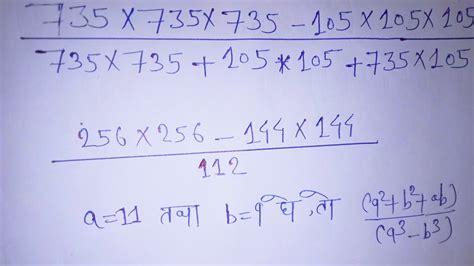 735 × 735 × 735 − 105 × 105 × 105
735 × 735 + 105 * 105 + 735 × 105
256 × 256 − 144 × 144
112
a=11 तथा b=9 है, तो (a²+b²+ab)
(a³−b³)